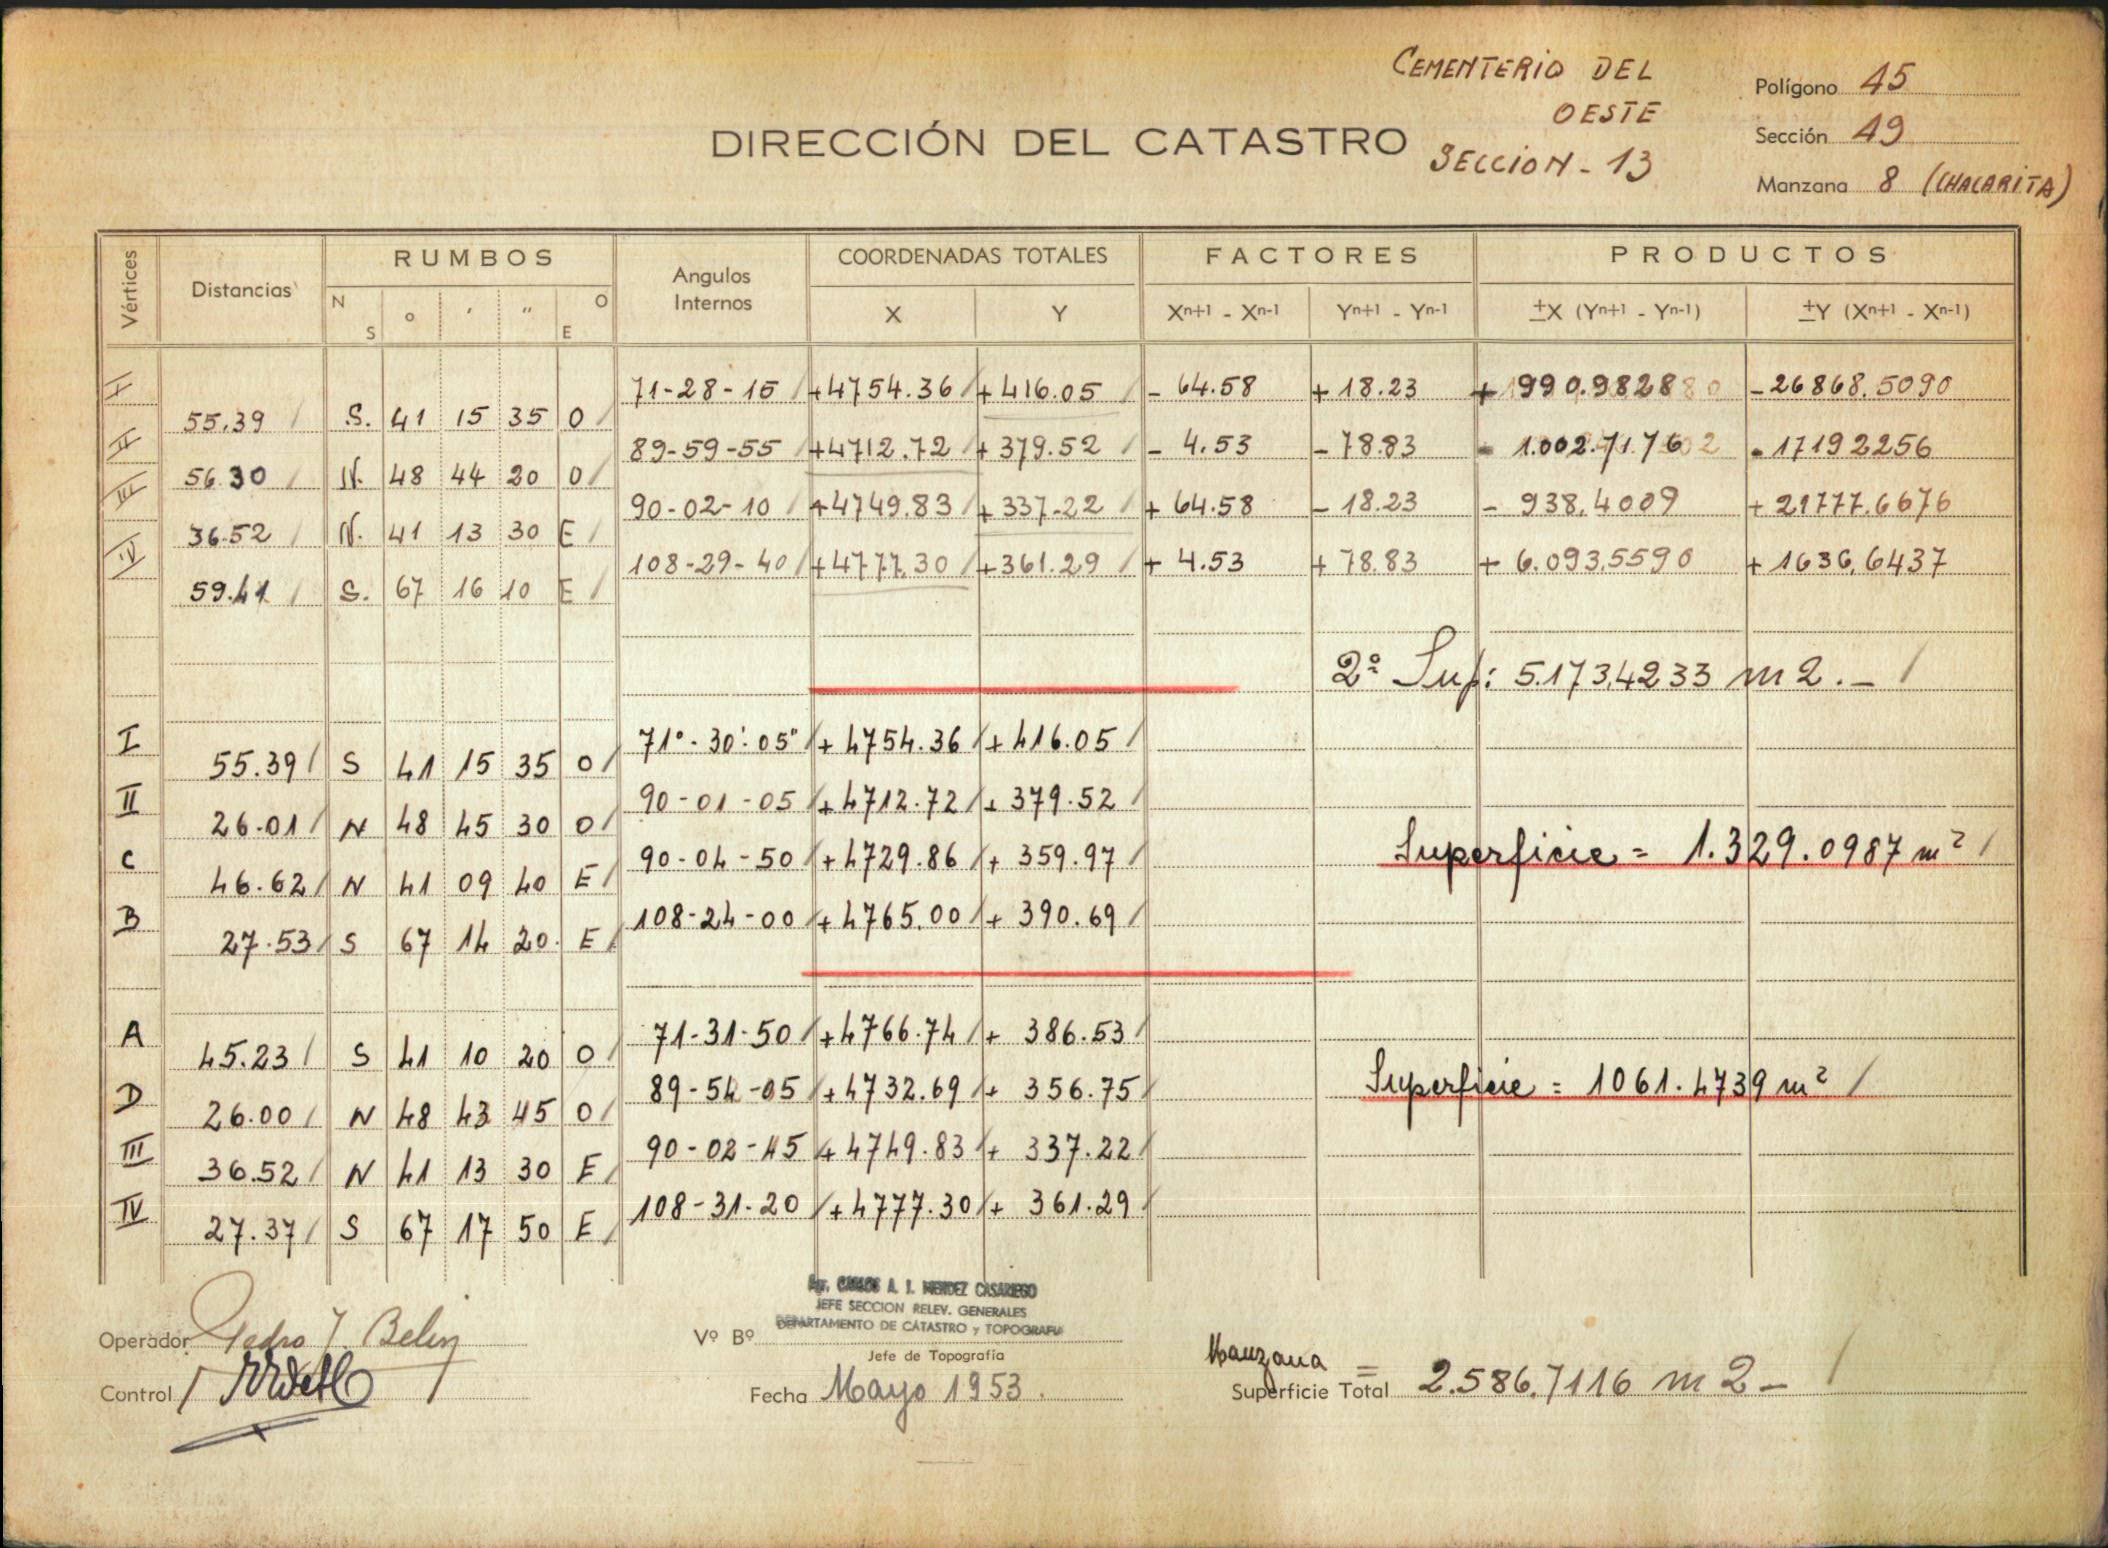 CEMENTERIO DEL
OESTE
SECCION - 13
Polígono 45
Sección 49
Manzana 8 (CHACARITA)
DIRECCIÓN DEL CATASTRO
Vértices Distancias RUMBOS Angulos Internos COORDENADAS TOTALES FACTORES PRODUCTOS
N S ° ' " O E X Y Xn+1 - Xn-1 Yn+1 - Yn-1 ±X (Yn+1 - Yn-1) ±Y (Xn+1 - Xn-1)
I 71-28-15 / +4754.36 / +416.05 / - 64.58 + 18.23 - 26868.5090
55.39 / S. 41 15 35 O /
II 89-59-55 / +4712.72 / + 379.52 / - 4.53 - 78.83 - 17192256
56.30 / N. 48 44 20 O /
III 90-02-10 / +4749.83 / + 337.22 / + 64.58 - 18.23 - 938.4009 + 21777.6676
36.52 / N. 41 13 30 E /
IV 108-29-40 / +4777.30 / +361.29 / + 4.53 + 78.83 + 6.093.5590 + 1636.6437
59.41 / S. 67 16 10 E /
2º Sup: 5.173.4233 m2.- /
I 71°-30'-05" / + 4754.36 / + 416.05 /
55.39 / S 41 15 35 O /
II 90-01-05 / +4712.72 / + 379.52 /
26.01 / N 48 45 30 O /
Superficie = 1.329.0987 m² /
C 90-04-50 / +4729.86 / + 359.97 /
46.62 / N 41 09 40 E /
B 108-24-00 / +4765.00 / + 390.69 /
27.53 / S 67 14 20. E /
A 71-31-50 / +4766.74 / + 386.53 /
45.23 / S 41 10 20 O /
D 89-54-05 / +4732.69 / + 356.75 /
Superficie = 1061.4739 m² /
26.00 / N 48 43 45 O /
III 90-02-45 / + 4749.83 / + 337.22 /
36.52 / N 41 13 30 E /
IV 108-31-20 / +4777.30 / + 361.29 /
27.37 / S 67 17 50 E /
Agr. CARLOS A. I. MENDEZ CASARIEGO
JEFE SECCION RELEV. GENERALES
DEPARTAMENTO DE CATASTRO y TOPOGRAFIA
Operador Pedro J. Belin
Vº Bº
Jefe de Topografía
Control
Fecha Mayo 1953.
Manzana =
Superficie Total 2.586.7116 m2- /